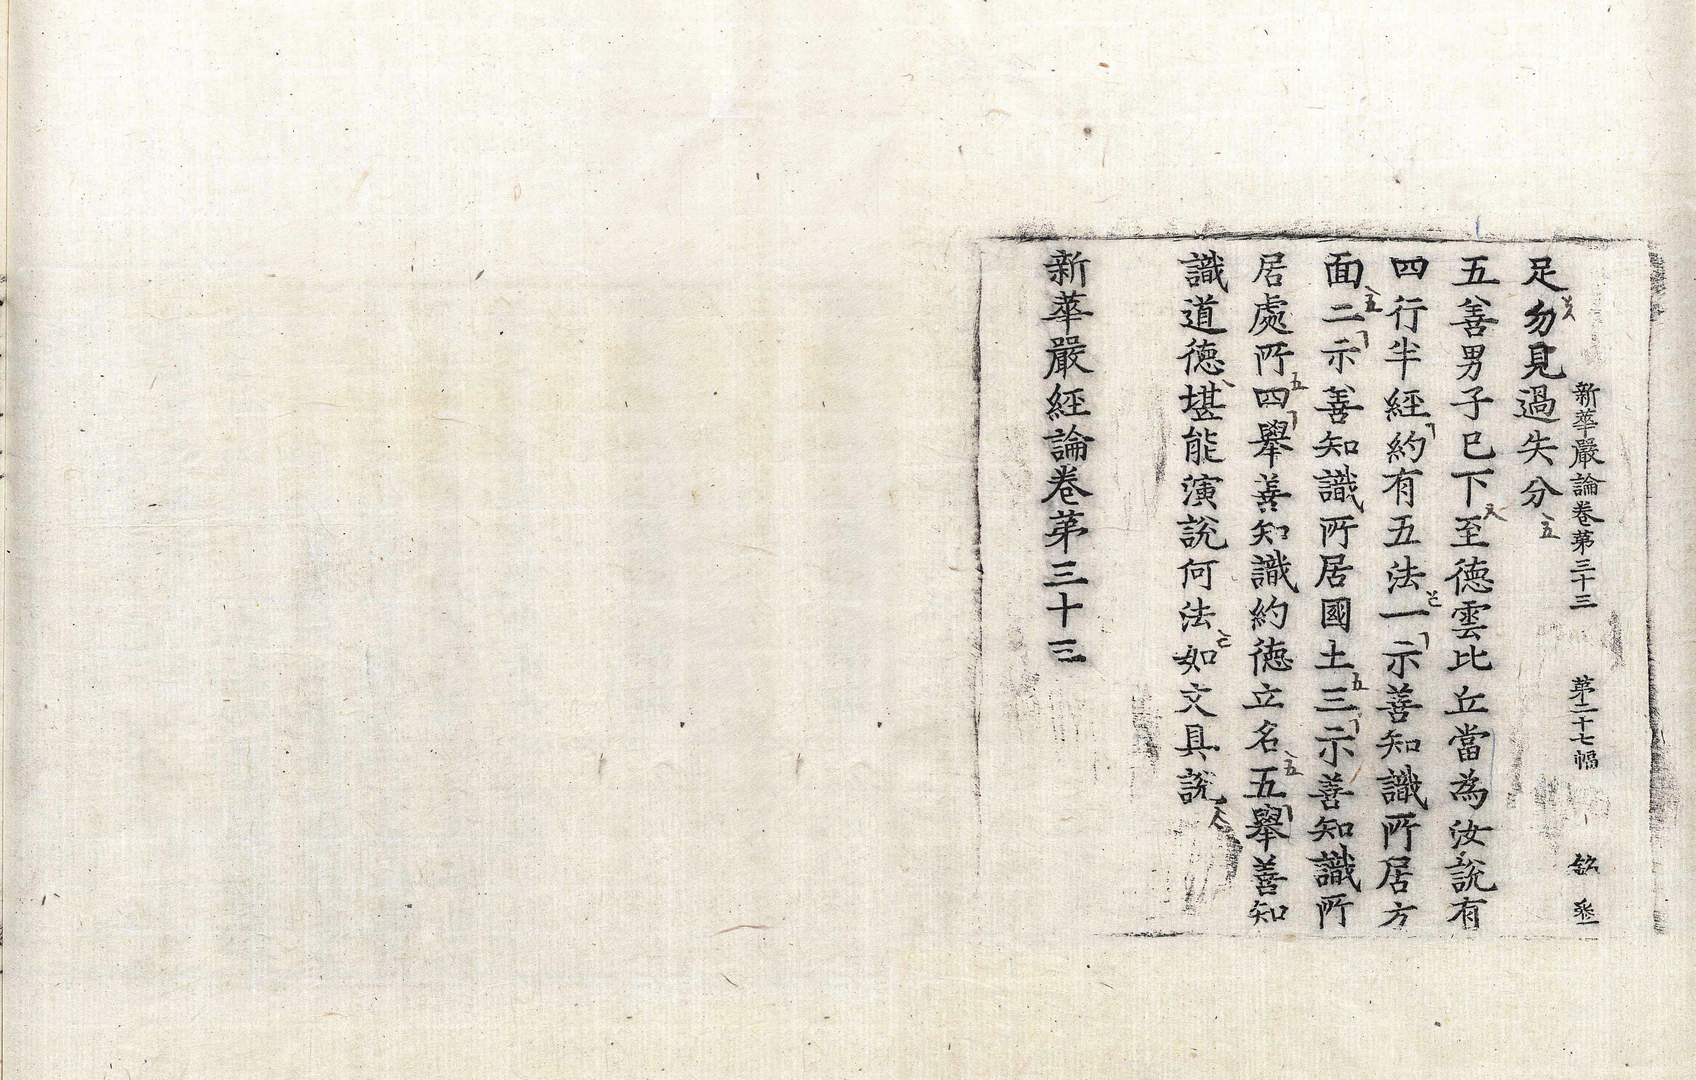 新華嚴論卷第三十三 第二十七幅
足勿見過失分
五善男子已下至德雲比丘當為汝說有
四行半經約有五法一示善知識所居方
面二示善知識所居國土三示善知識所
居處所四舉善知識約德立名五舉善知
識道德堪能演說何法如文具說
新華嚴經論卷第三十三